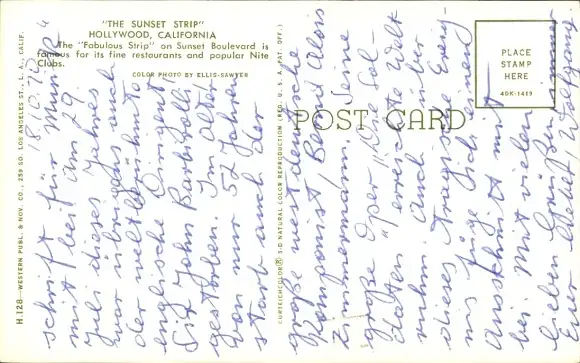 "THE SUNSET STRIP"
HOLLYWOOD, CALIFORNIA
The "Fabulous Strip" on Sunset Boulevard is
famous for its fine restaurants and popular Nite
Clubs.
COLOR PHOTO BY ELLIS-SAWYER
H.128—WESTERN PUBL. & NOV. CO., 259 SO. LOS ANGELES ST., L. A., CALIF.
CURTEICHCOLOR® 3-D NATURAL COLOR REPRODUCTION (REG. U. S. A. PAT. OFF.)
POST CARD
PLACE
STAMP
HERE
4DK-1419
18.10.70
schrift für Musik"
mit bei. Am 29
Juli dieses Jahres
war übrigens auch
der weltberühmte
englische Dirigent
Sir John Barbirolli
gestorben. Im Alter
von nur 52 Jahren
starb auch der
große westdeutsche
Komponist Bernd Alois
Zimmermann. Seine
große Oper "Die Sol-
daten" erreichte Welt-
ruhm. Auch über
dieses tragische Ereig-
nis füge ich einen
Ausschnitt mit
bei. Mit vielen
lieben Grüßen immer
Euer Wolfgang